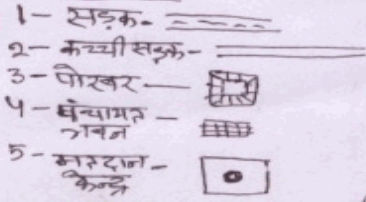 1- सड़क-
2- कच्ची सड़क-
3- पोखर —
4- पंचायत -
भवन
5- मतदान -
केन्द्र